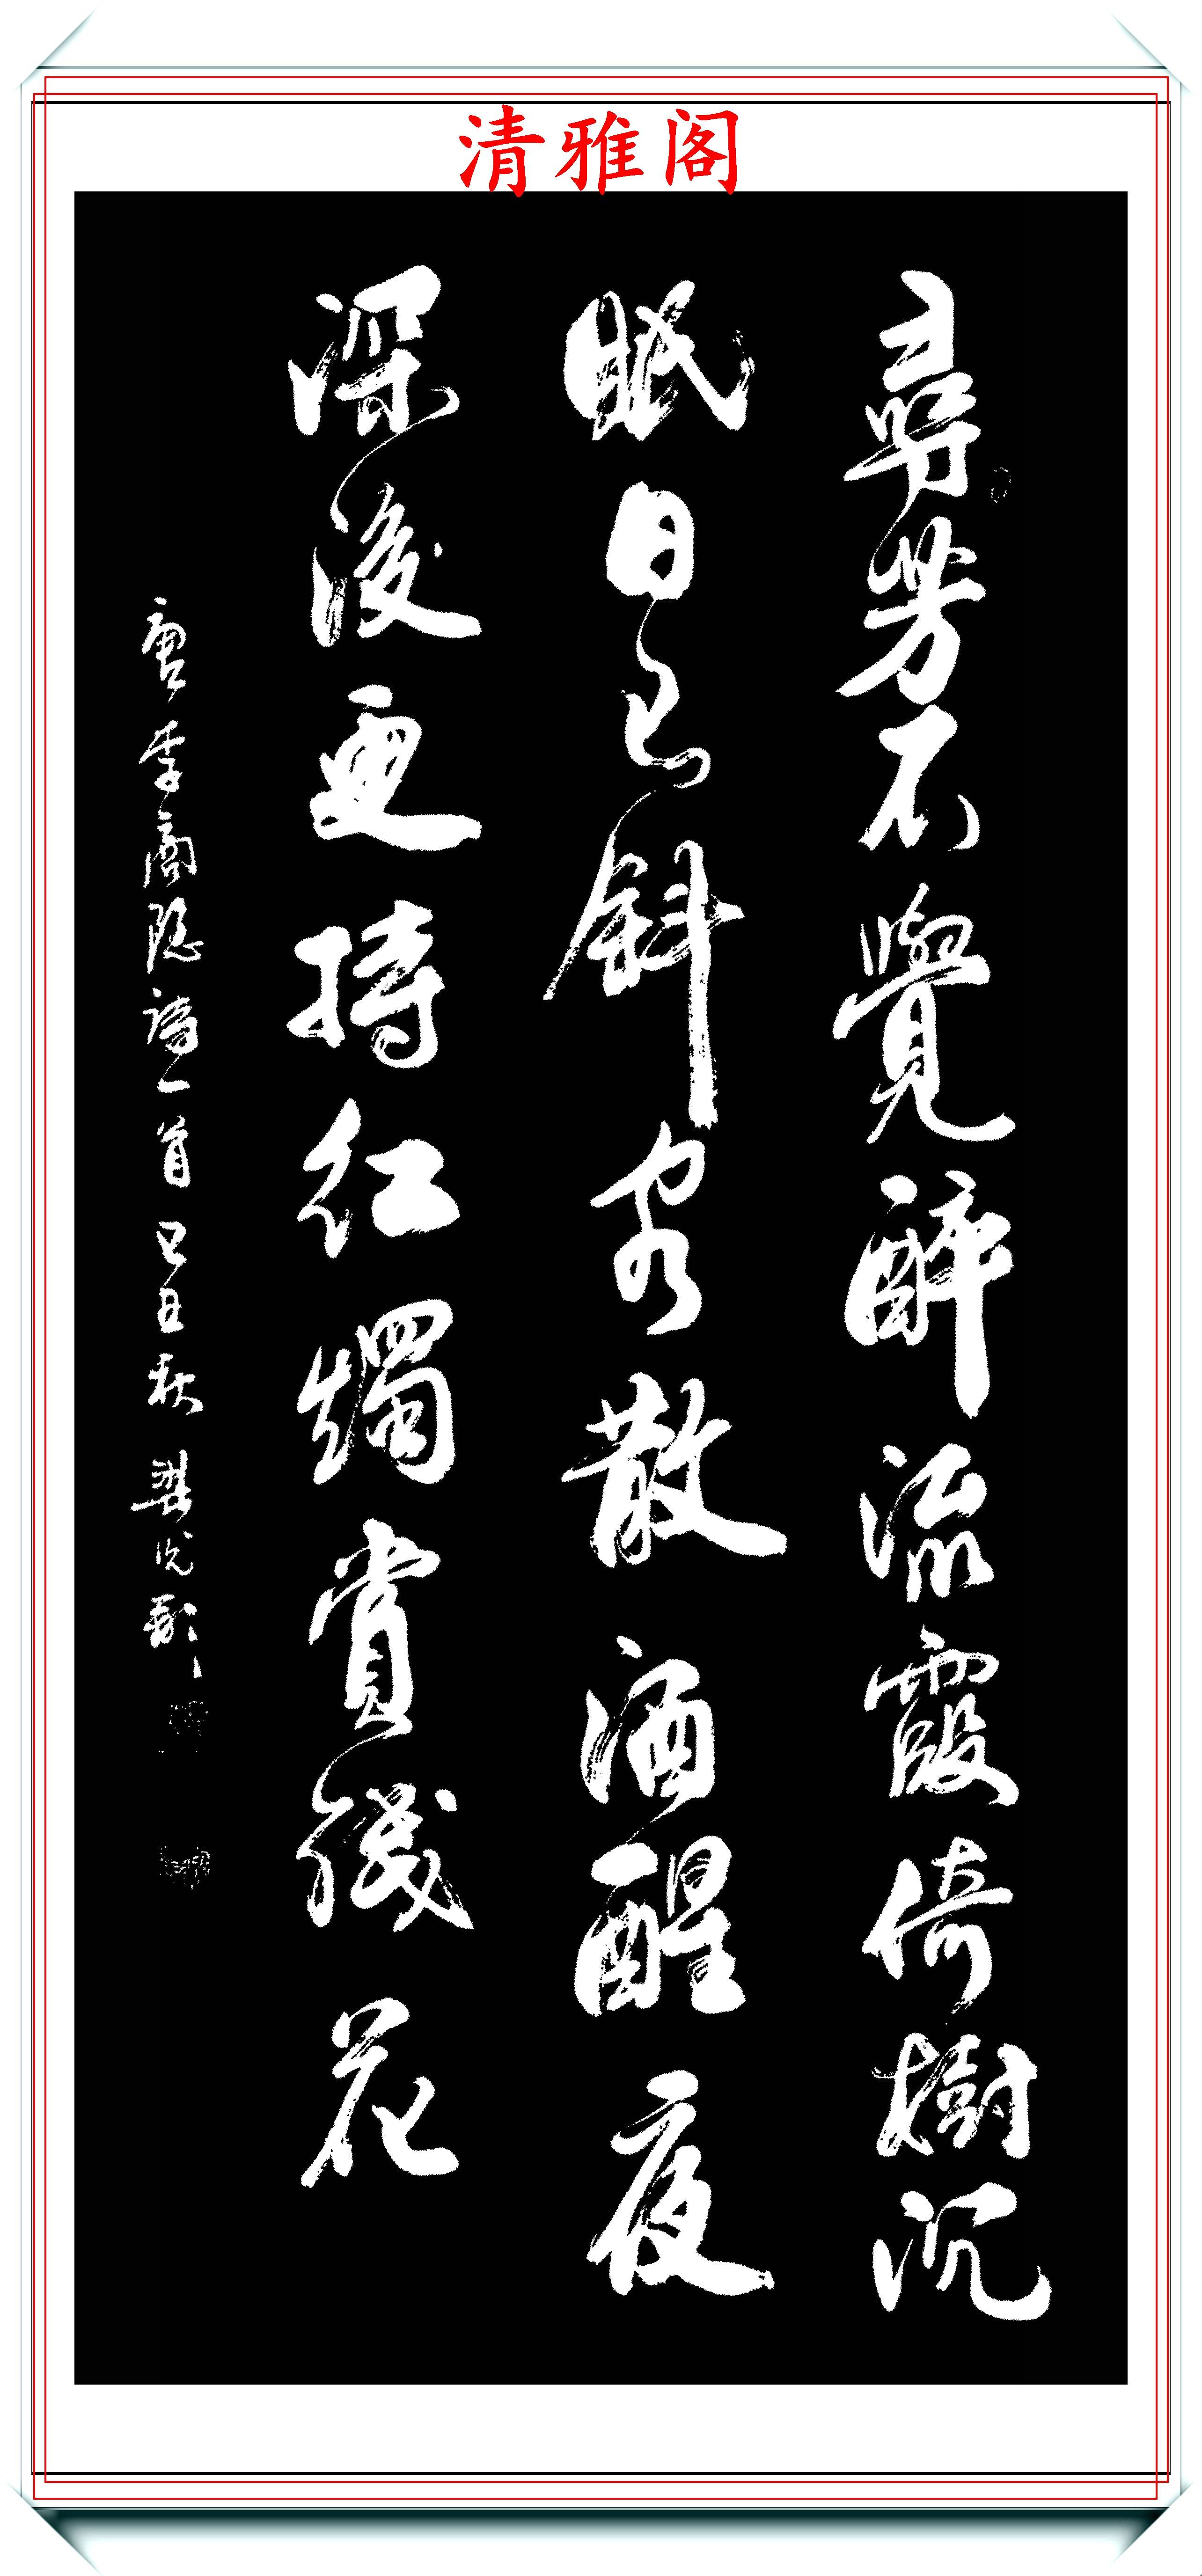 清雅阁
尋芳不覺醉流霞倚樹沉
眠日已斜客散酒醒夜
深後更持紅燭賞殘花
唐李商隐詩一首 己丑秋